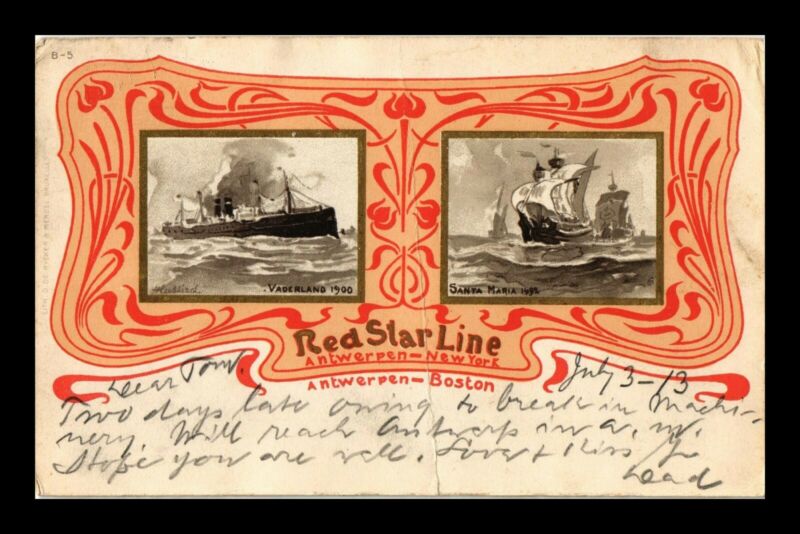 B-5
VADERLAND 1900
SANTA MARIA 1492
Red Star Line
Antwerpen—New York
Antwerpen—Boston
July 3–13
Dear Tom.
Two days late owing to break in Machi-
nery. Will reach Antwerp in a.m.
Hope you are well. Love & Kiss fr
Dad